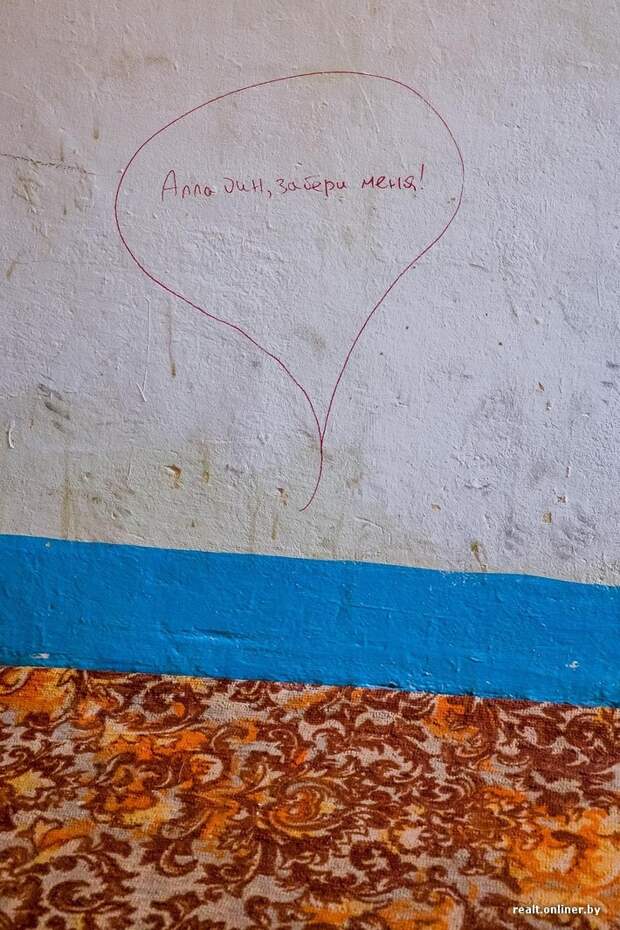 Алладин, забери меня!
realt.onliner.by